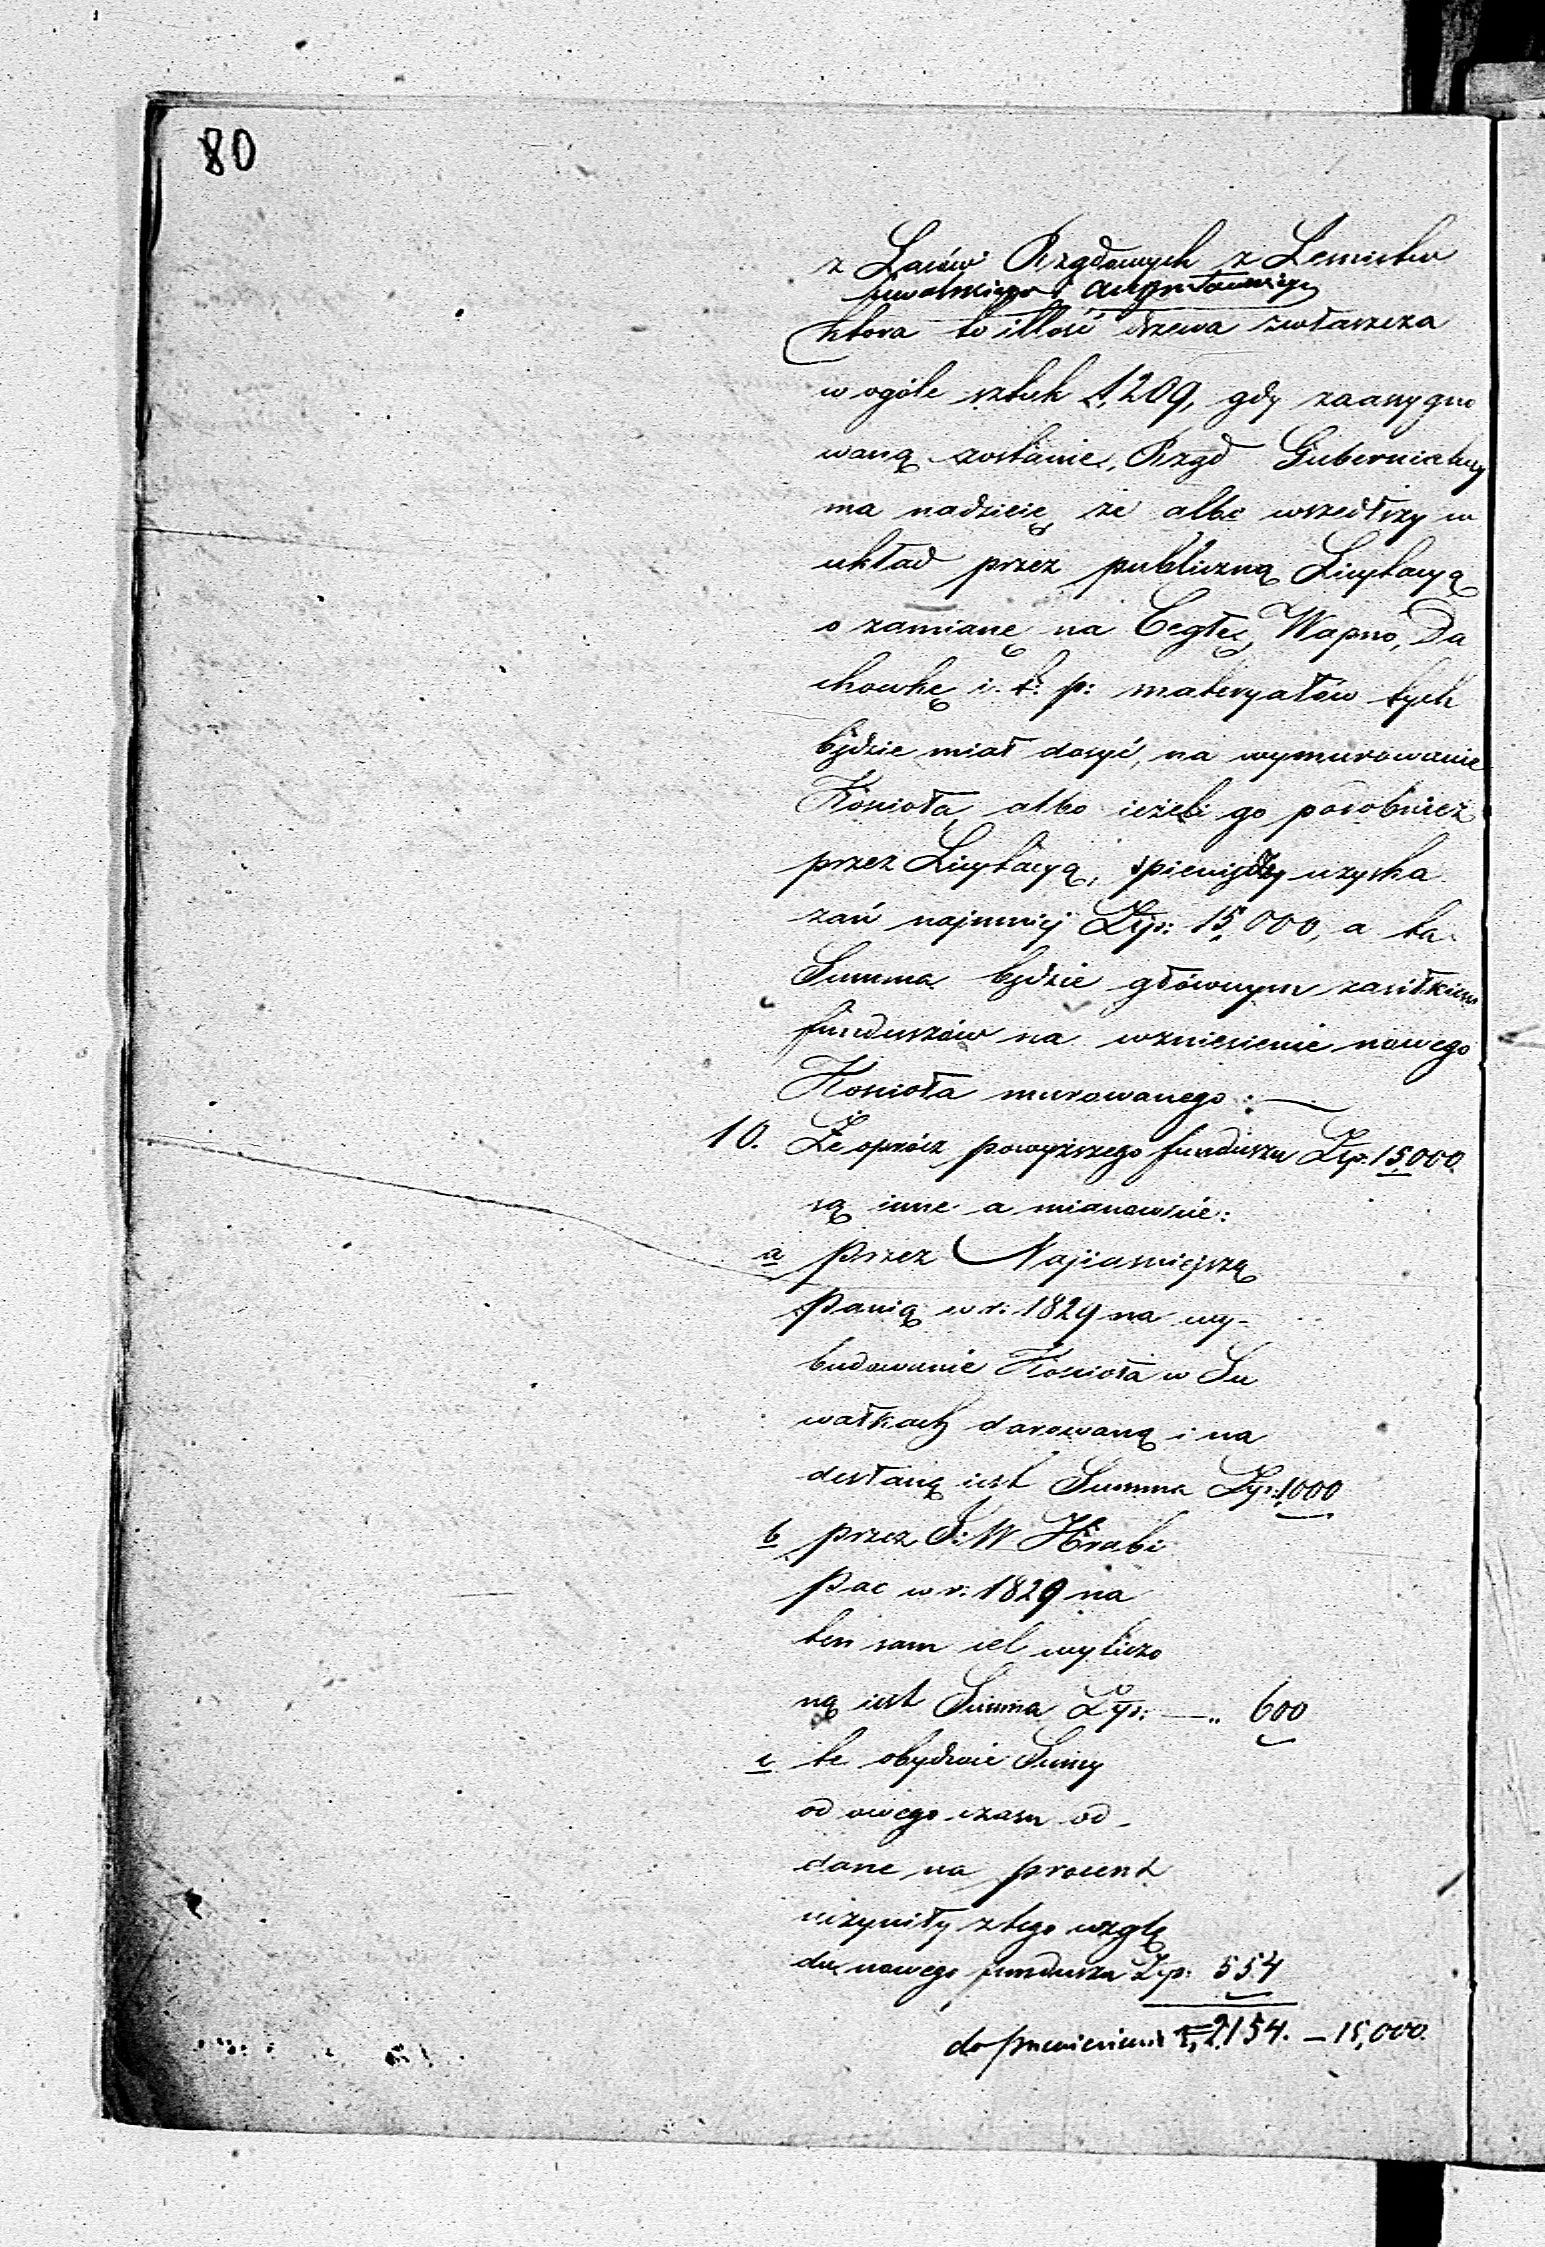 80
z Lasów Rządowych z Leśnictw
suwalskiego i augustowskiego
która to illość drzewa zwłaszcza
w ogóle sztuk 1,209, gdy zaasygno
waną zostanie, Rząd Gubernialny
ma nadzieię że albo wszedłszy w
układ przez publiczną Licytacyą
o zamianę na Cegłę, Wapno, Da
chowkę i. t: p: materyałów tych
będzie miał dosyć, na wymurowanie
Kościoła, albo ieżeli go
przez Licytacyą, spieniędzy uzyska
zań najmniej Złp: 15,000, a ta
Summa będzie głównym zasiłkiem
funduszów na wzniesienie nowego
Kościoła murowanego:
10. Że oprócz powyższego funduszu Złp. 15,000
są inne a mianowicie:
a przez Najiaśniejszą
Panią w r: 1829 na wy-
budowanie Kościoła w Su
wałkach darowaną i na
desłaną iest Summa Złp: 1000
b przez J: W Hrabi
Pac w r: 1829 na
ten sam cel wyliczo
ną iest Summa Złp: —„ 600
c te obydwie Sumy
od owego czasu od-
dane na procent
uczyniły z tego wzglę
du nowego funduszu Złp: 554
do przeniesienia 2154. – 15,000.